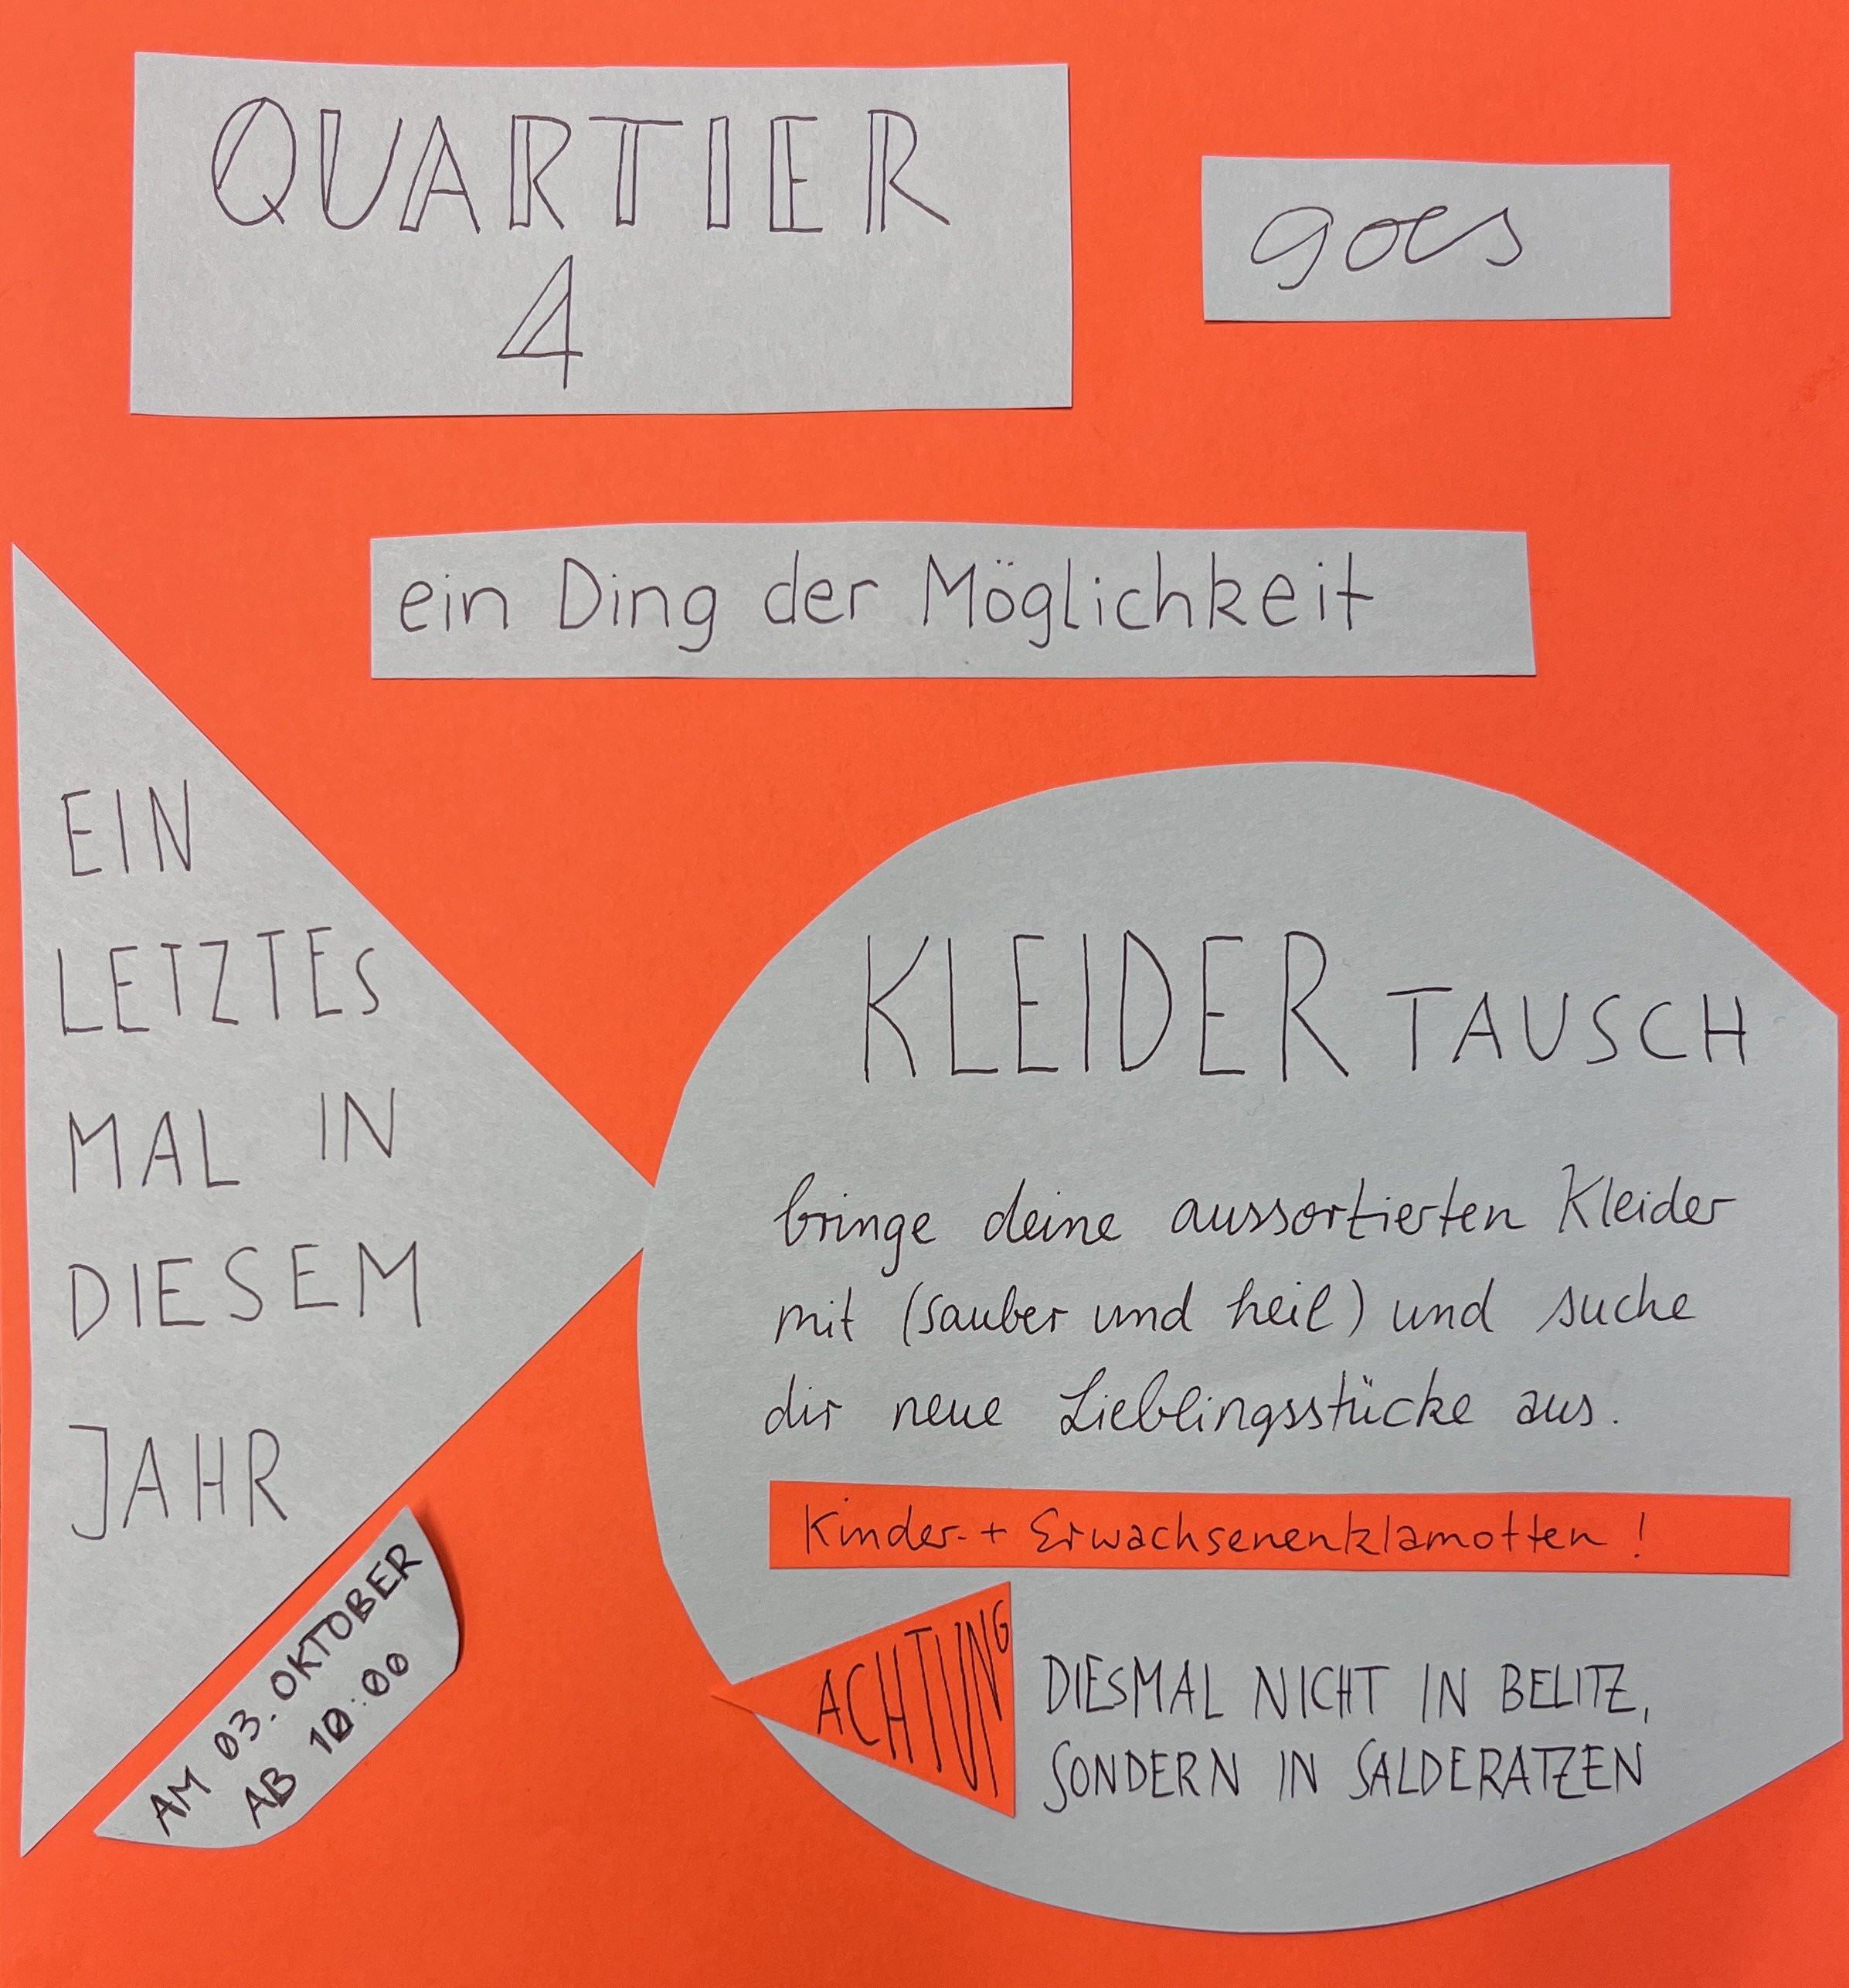 QUARTIER
4
goes
ein Ding der Möglichkeit
EIN
LETZTES
MAL IN
DIESEM
JAHR
AM 03. OKTOBER
AB 10:00
KLEIDERTAUSCH
bringe deine aussortierten Kleider
mit (sauber und heil) und suche
dir neue Lieblingsstücke aus.
Kinder- + Erwachsenenklamotten!
ACHTUNG
DIESMAL NICHT IN BELITZ,
SONDERN IN SALDERATZEN